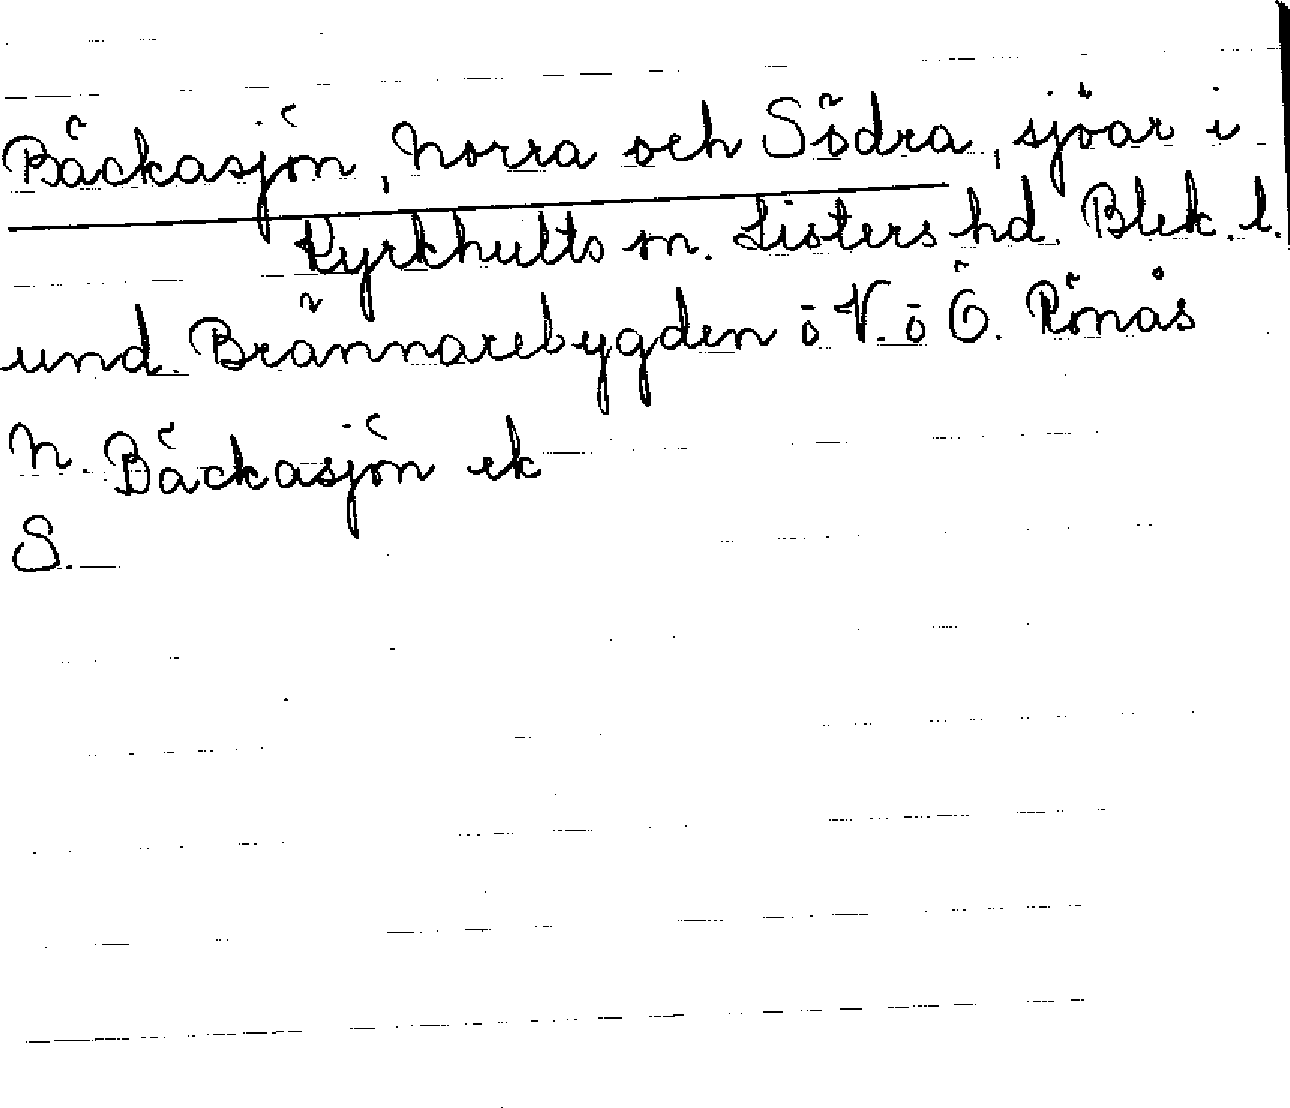 Bäckasjön, Norra och Södra, sjöar i
Kyrkhults sn. Listers hd. Blek. l.
und. Brännarebygden ö V. ö Ö. Rönås
N. Bäckasjön ek
S. —